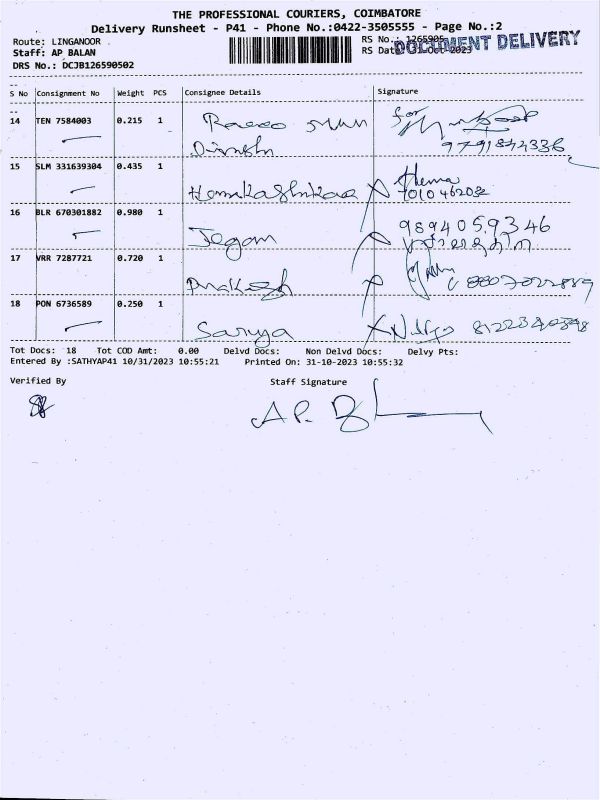 THE PROFESSIONAL COURIERS, COIMBATORE
Delivery Runsheet - P41 - Phone No.:0422-3505555 - Page No.:2
Route: LINGANOOR
RS No.: 1265905
Staff: AP BALAN
RS Date: 31-Oct-2023
DOCUMENT DELIVERY
DRS No.: DCJB126590502
S No Consignment No Weight PCS Consignee Details Signature
14 TEN 7584003 0.215 1
Dinesh
15 SLM 331639304 0.435 1 Hema
16 BLR 670301882 0.980 1 Jegan 9894059346
17 VRR 7287721 0.720 1 Prakash
18 PON 6736589 0.250 1 Sarnya
Tot Docs: 18 Tot COD Amt: 0.00 Delvd Docs: Non Delvd Docs: Delvy Pts:
Entered By :SATHYAP41 10/31/2023 10:55:21 Printed On: 31-10-2023 10:55:32
Verified By Staff Signature
A P.